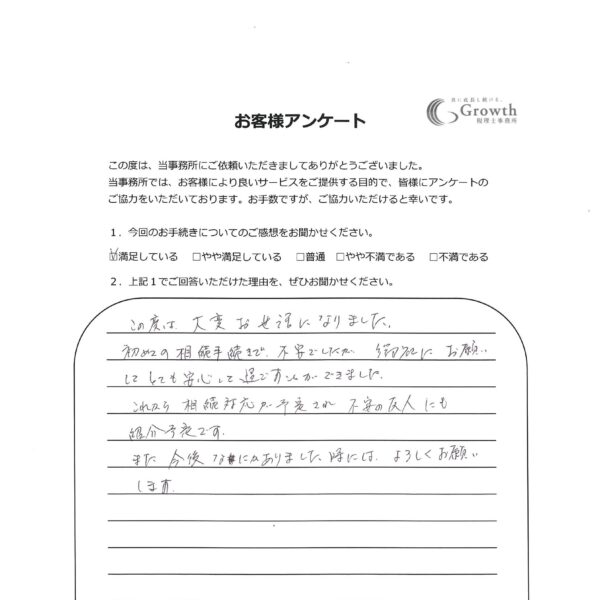 共に成長し続ける。
Growth
税理士事務所
お客様アンケート
この度は、当事務所にご依頼いただきましてありがとうございました。
当事務所では、お客様により良いサービスをご提供する目的で、皆様にアンケートの
ご協力をいただいております。お手数ですが、ご協力いただけると幸いです。
1．今回のお手続きについてのご感想をお聞かせください。
☑満足している　□やや満足している　□普通　□やや不満である　□不満である
2．上記1でご回答いただけた理由を、ぜひお聞かせください。
この度は、大変お世話になりました。
初めての相続手続きで、不安でしたが 御社に お願い
して とても安心して過ごすことができました。
これから 相続対応が予定され 不安の友人にも
紹介予定です。
また 今後 なにかありました時には、よろしくお願い
します。